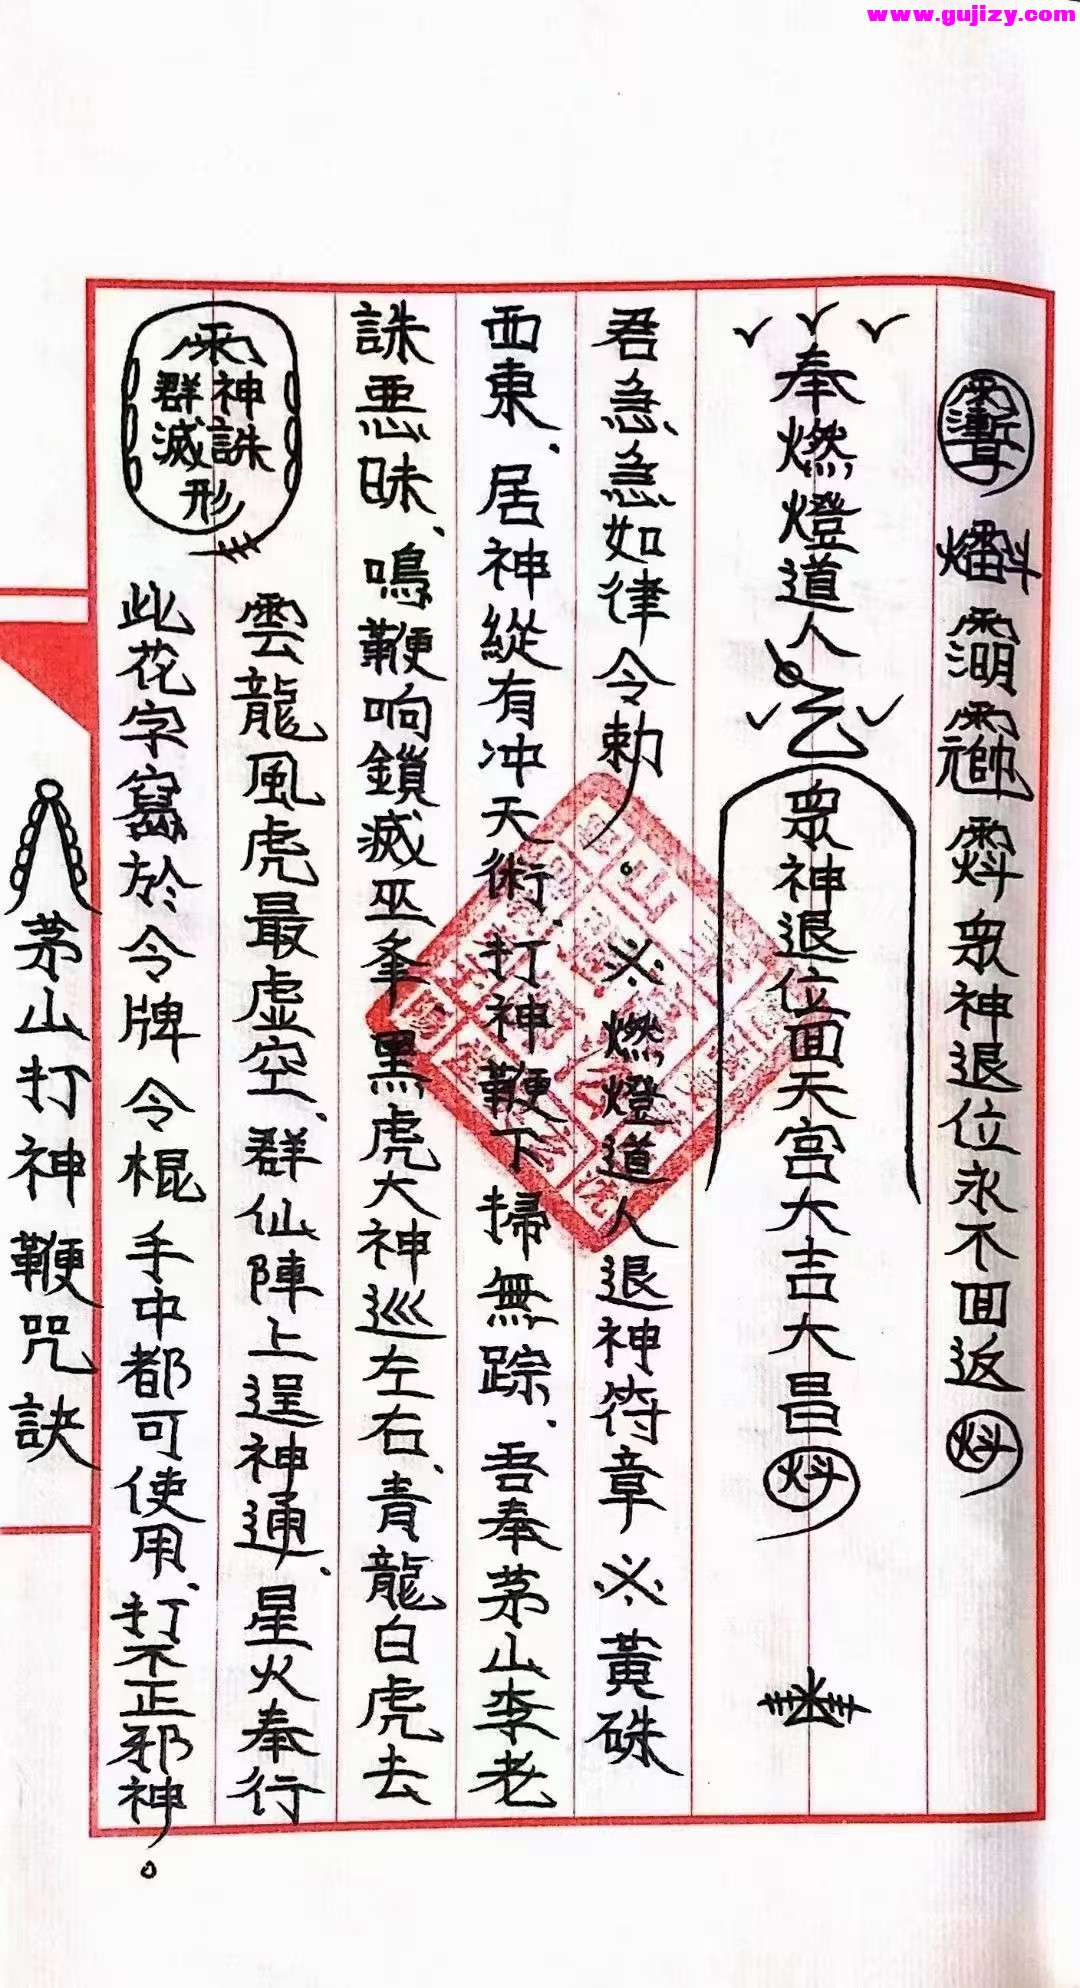 www.gujizy.com
茅山打神鞭咒訣
神誅群滅形
此花字寫於令牌令棍手中都可使用、打不正邪神。
雲龍風虎最虛空、群仙陣上逞神通、星火奉行
誅惡昧、鳴鞭响鎖滅巫峯、黑虎大神巡左右、青龍白虎去
西東、居神縱有冲天術、打神鞭下掃無踪、吾奉茅山李老
君急急如律令勅。※燃燈道人退神符章※黃硃
奉燃燈道人
眾神退位回天宮大吉大昌
眾神退位永不回返